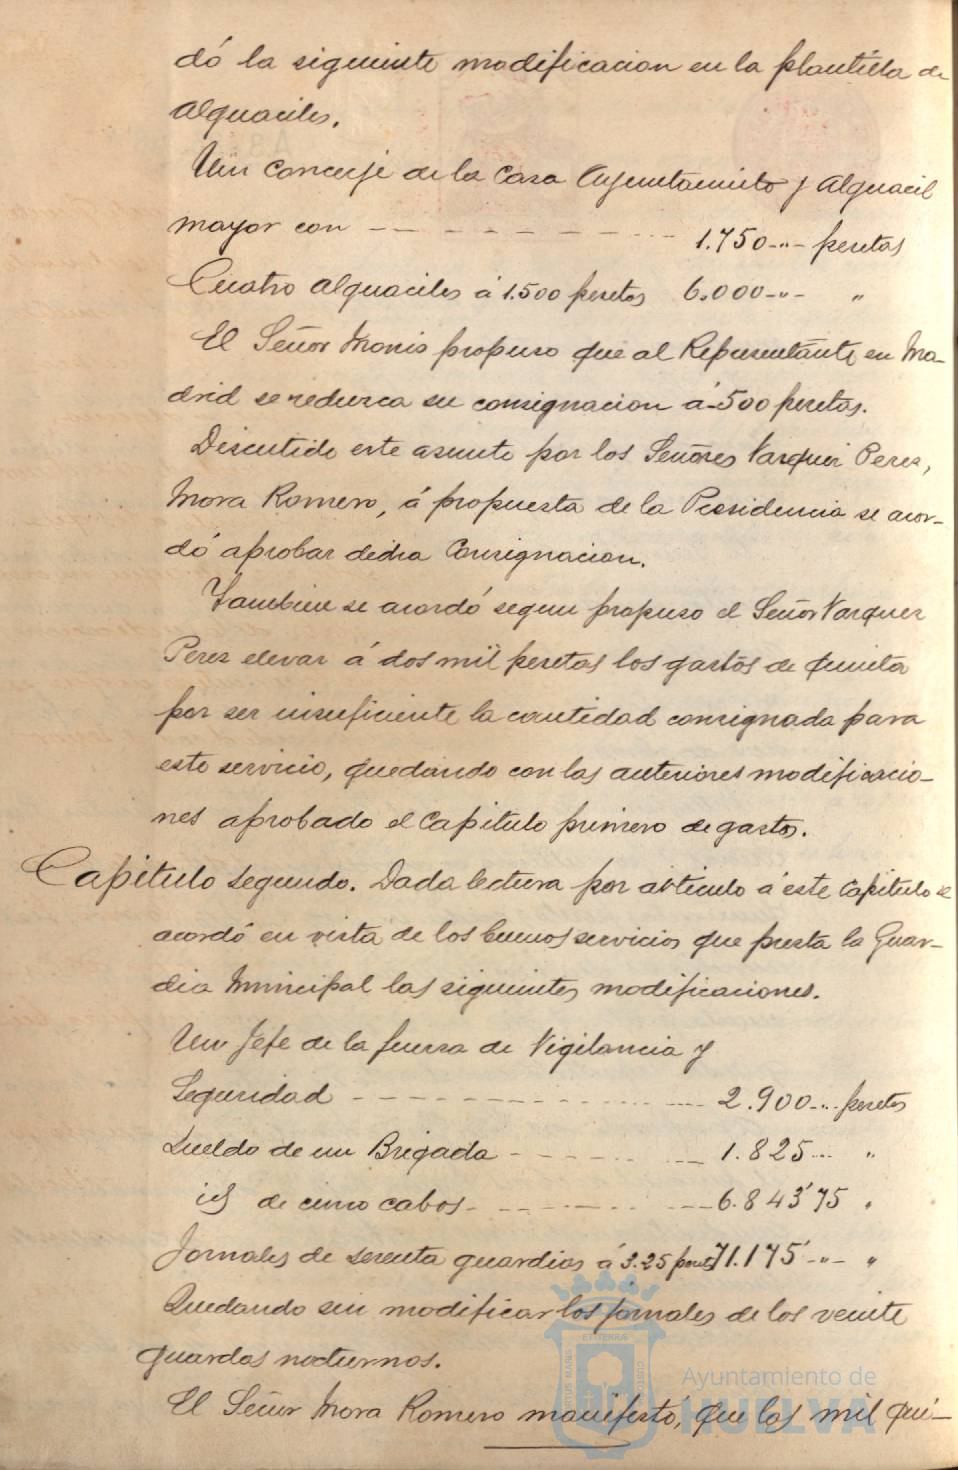 dó la siguiente modificacion en la plantilla de
alguaciles.
Un Concerje de la Casa Ayuntamiento y Alguacil
mayor con - - - - - - - 1.750 -"- pesetas
Cuatro alguaciles á 1.500 pesetas 6.000 -"- "
El Señor Monis propuso que al Representante en Ma-
drid se reduzca su consignacion á 500 pesetas.
Discutido este asunto por los Señores Vazquez Perez,
Mora Romero, á propuesta de la Presidencia se acor-
dó aprobar dicha Consignacion.
Tambien se acordó segun propuso el Señor Vazquez
Perez elevar á dos mil pesetas los gastos de quinta
por ser insuficiente la cantidad consignada para
este servicio, quedando con las anteriores modificacio-
nes aprobado el Capitulo primero de gastos.
Capitulo segundo. Dada lectura por articulo á este Capitulo se
acordó en vista de los buenos servicios que presta la Guar-
dia Municipal las siguientes modificaciones.
Un Jefe de la fuerza de Vigilancia y
Seguridad - - - - - - - 2.900 -"- pesetas
Sueldo de un Brigada - - - - - 1.825 -"- "
id de cinco cabos - - - - - 6.843'75 "
Jornales de sesenta guardias á 3.25 peset 71.175' -"- "
Quedando sin modificar los jornales de los veinte
guardas nocturnos.
El Señor Mora Romero manifestó, que las mil qui-
Ayuntamiento de
HUELVA